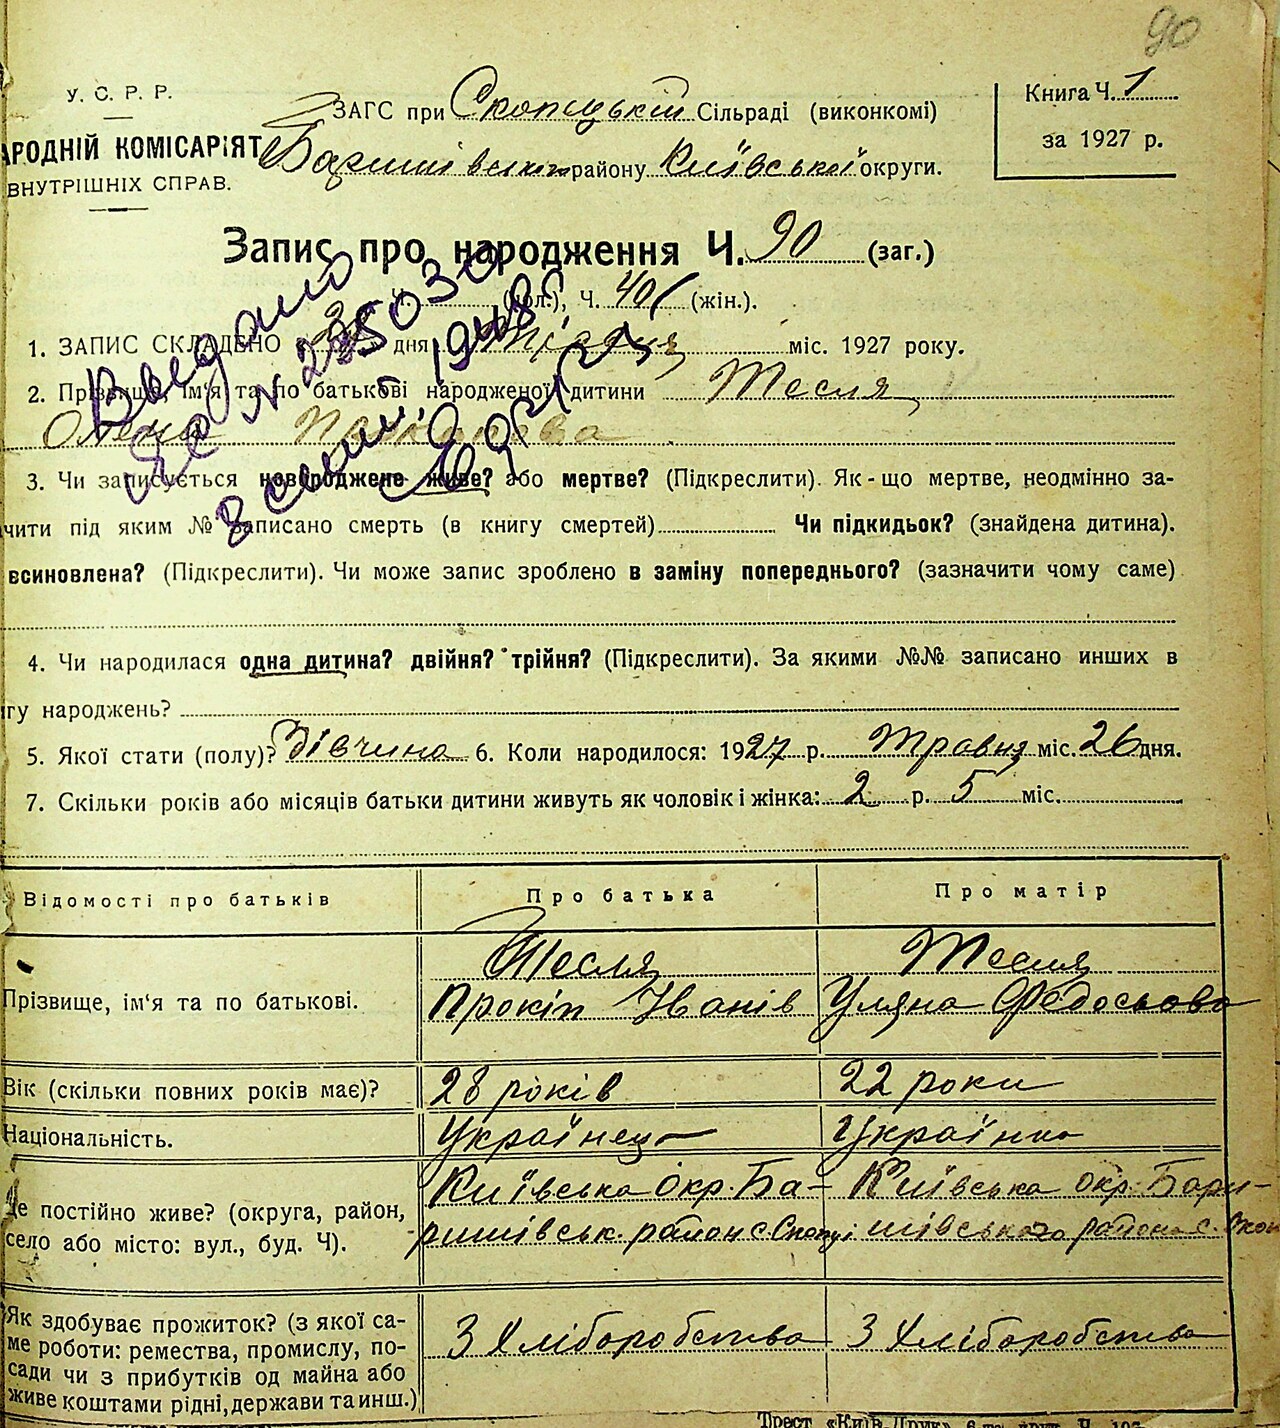 90
У. С. Р. Р.
АРОДНІЙ КОМІСАРІЯТ
ВНУТРІШНІХ СПРАВ.
ЗАГС при Скопецькій Сільраді (виконкомі)
Баришівськ району Київської округи.
Книга Ч. 1
за 1927 р.
Запис про народження Ч. 90 (заг.)
Ч. (чол.), Ч. 40 (жін.).
1. ЗАПИС СКЛАДЕНО дня міс. 1927 року.
2. Прізвище, ім'я та по батькові народженої дитини Тесля
Олена
3. Чи записується новороджене живе? або мертве? (Підкреслити). Як-що мертве, неодмінно за-
чити під яким № записано смерть (в книгу смертей) Чи підкидьок? (знайдена дитина).
всиновлена? (Підкреслити). Чи може запис зроблено в заміну попереднього? (зазначити чому саме)
4. Чи народилася одна дитина? двійня? трійня? (Підкреслити). За якими №№ записано инших в
гу народжень?
5. Якої стати (полу)? Дівчина 6. Коли народилося: 1927 р. Травня міс. 26 дня.
7. Скільки років або місяців батьки дитини живуть як чоловік і жінка: 2 р. 5 міс.
Відомості про батьків Про батька Про матір
Тесля Тесля
Прізвище, ім'я та по батькові. Прокіп Іванів Уляна Федосьова
Вік (скільки повних років має)? 28 років 22 роки
Національність. Українець Українка
Київська Окр. Ба- Київська окр. Бари-
Де постійно живе? (округа, район, ришівськ. район с. Скопці шівського района с. Скоп
село або місто: вул., буд. Ч).
Як здобуває прожиток? (з якої са- З Хліборобства З Хліборобства
ме роботи: ремества, промислу, по-
сади чи з прибутків од майна або
живе коштами рідні, держави та инш.)
Выдано
N 295030
1948
Трест «Київ-Друк» 6-та друк. Ч. 107